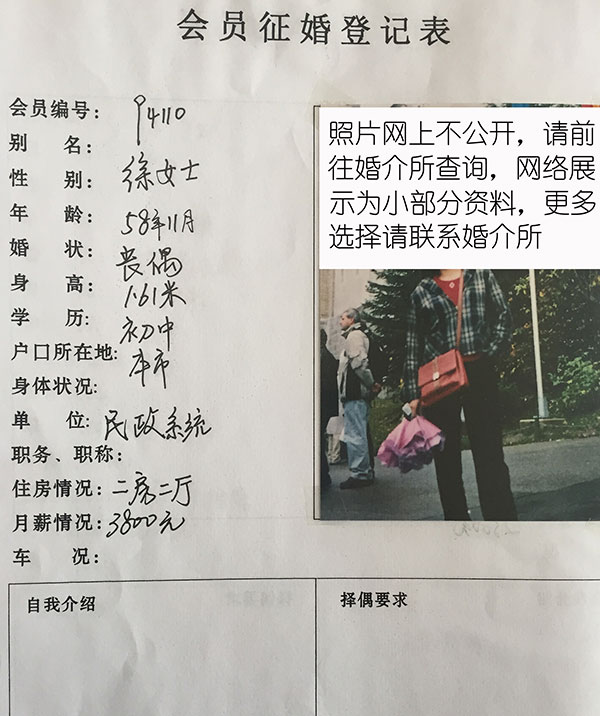 会员征婚登记表
会员编号: ♀4110
别 名:
性 别: 徐女士
年 龄: 58年11月
婚 状: 丧偶
身 高: 1.61米
学 历: 初中
户口所在地: 本市
身体状况:
单 位: 民政系统
职务、职称:
住房情况: 二房二厅
月薪情况: 3800元
车 况:
照片网上不公开，请前
往婚介所查询，网络展
示为小部分资料，更多
选择请联系婚介所
自我介绍
择偶要求